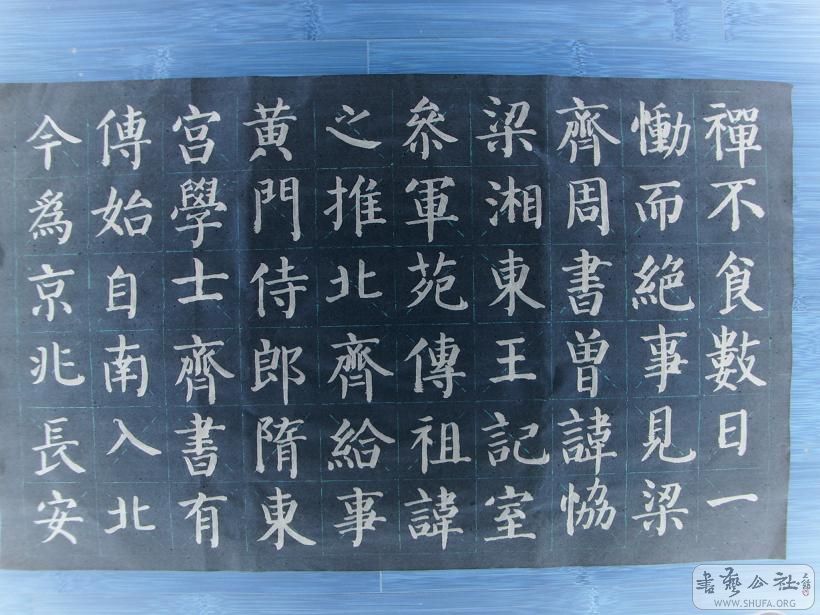 禪不食數日一
慟而絶事見梁
齊周書曾諱恊
梁湘東王記室
叅軍苑傳祖諱
之推北齊給事
黄門侍郎隋東
宮學士齊書有
傳始自南入北
今爲京兆長安
書藝公社
WWW.SHUFA.ORG